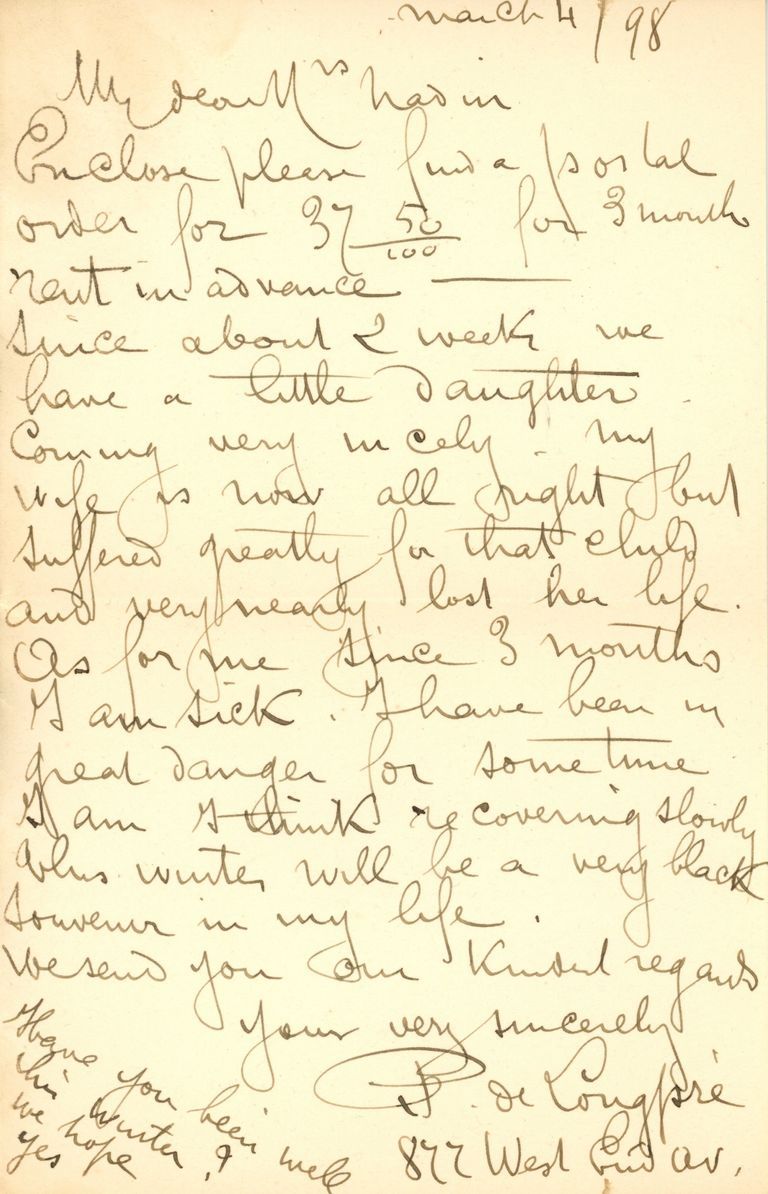 March 4/98
My dear Mrs Nadin
Enclose please find a postal
order for 37 50/100 for 3 months
rent in advance —
Since about 2 week we
have a little daughter.
Coming very nicely. My
wife is now all right but
suffered greatly for that child
and very nearly lost her life.
As for me since 3 months
I am sick. I have been in
great danger for sometime
I am I think recovering slowly
This winter will be a very black
souvenir in my life.
We send you our kindest regards
Your very sincerely
P. de Longpré
877 West End Av.
Have you been well
this winter,?
we hope
yes